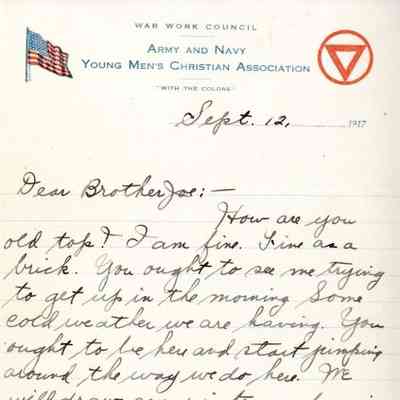 WAR WORK COUNCIL
ARMY AND NAVY
YOUNG MEN'S CHRISTIAN ASSOCIATION
"WITH THE COLORS"
Sept. 12, 1917
Dear Brother Joe:—
How are you
old top? I am fine. Fine as a
brick. You ought to see me trying
to get up in the morning Some
cold weather we are having. You
ought to be here and start jumping
around the way we do here. We
will draw our